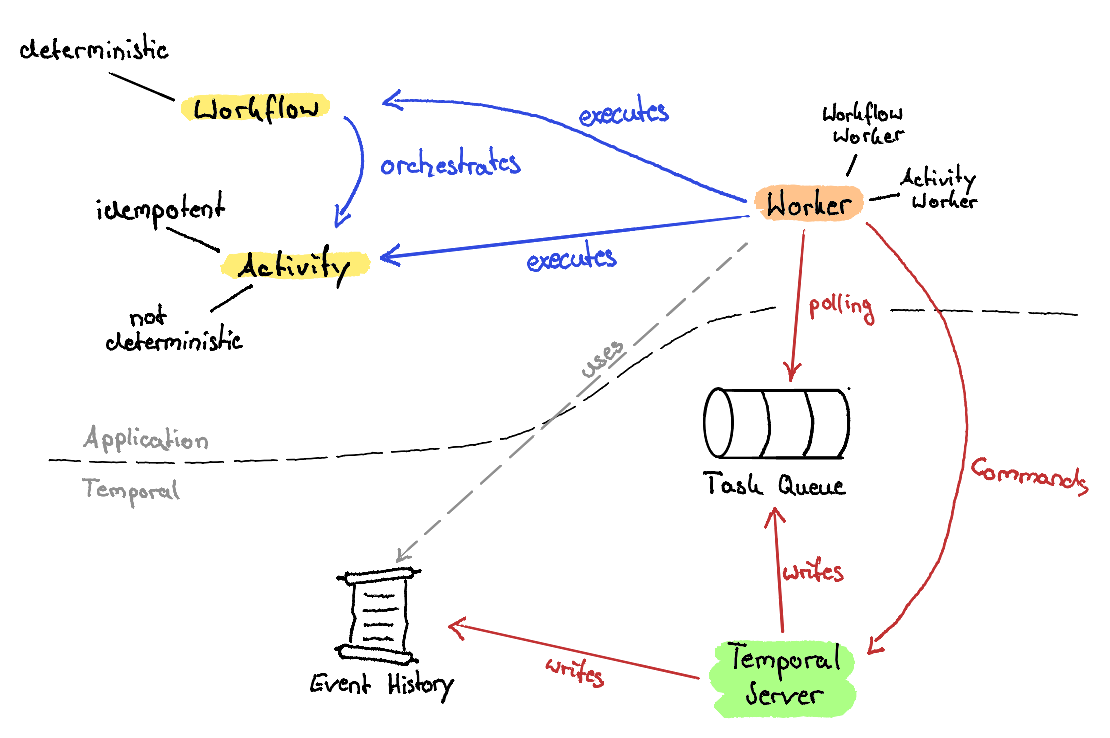 deterministic
Workflow
executes
Workflow
Worker
orchestrates
Activity
Worker
Worker
idempotent
Activity
executes
not
deterministic
polling
uses
Application
Temporal
Task Queue
Commands
writes
Event History
writes
Temporal
Server